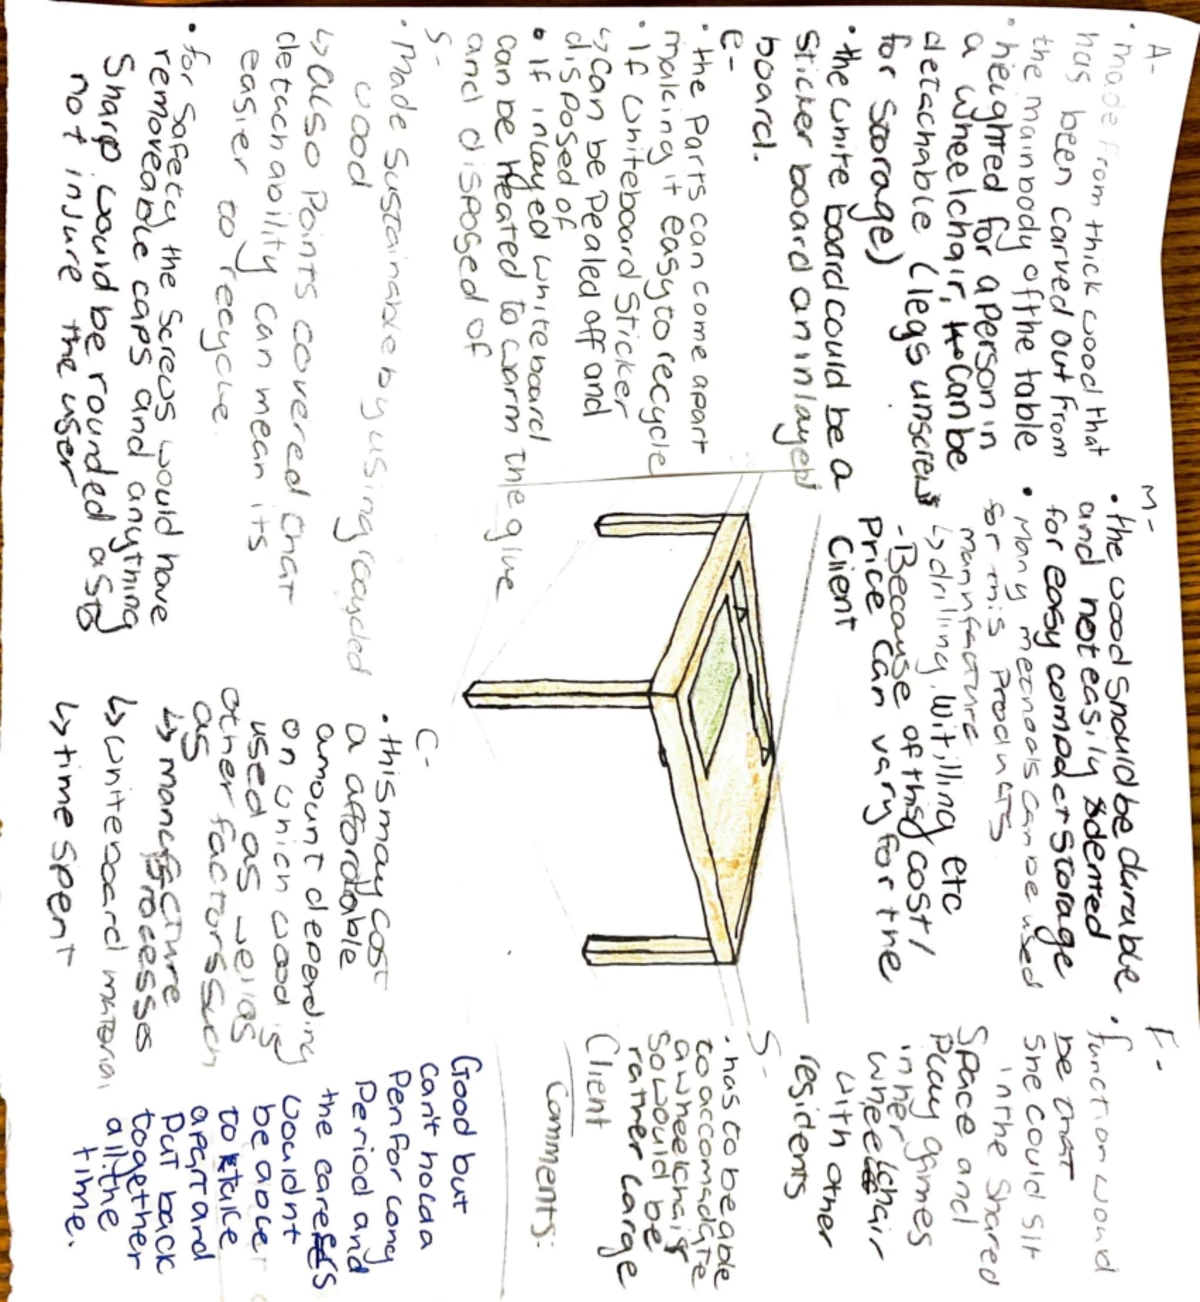 A-
· made from thick wood that
has been carved out from
the mainbody of the table
· heighted for a person in
a wheelchair, can be
detachable (legs unscrews
for storage)
· the white board could be a
sticker board or inlayed
board.
E-
· the parts can come apart
making it easy to recycle
· If whiteboard Sticker
↳ Can be Pealed off and
disposed of
· If inlayed whiteboard
can be heated to warm the glue
and disposed of
S-
· Made Sustainable by using recycled
wood
↳ also Points covered that
detachability can mean its
easier to recycle.
· for safety the Screws would have
removeable caps and anything
Sharp would be rounded as to
not injure the user
M-
· the wood should be durable
and not easily dented
for easy compact storage
· Many methods can be used
for this Products
mannfacture
↳ drilling, witilling etc
- Because of this cost/
Price can vary for the
Client
C-
· this may cost
a affordable
amount depending
on which wood is
used as well as
other factors such
as
↳ manufacture
Processes
↳ whiteboard material
↳ time spent
F-
· function would
be that
she could sit
in the shared
Space and
Play games
in her
wheelchair
with other
residents
S-
· has to be able
to accomadate
a wheelchair
So would be
rather large
Client
Comments:
Good but
can't hold a
Pen for long
Period and
the carers
wouldnt
be able
to take
apart and
put back
together
all the
time.